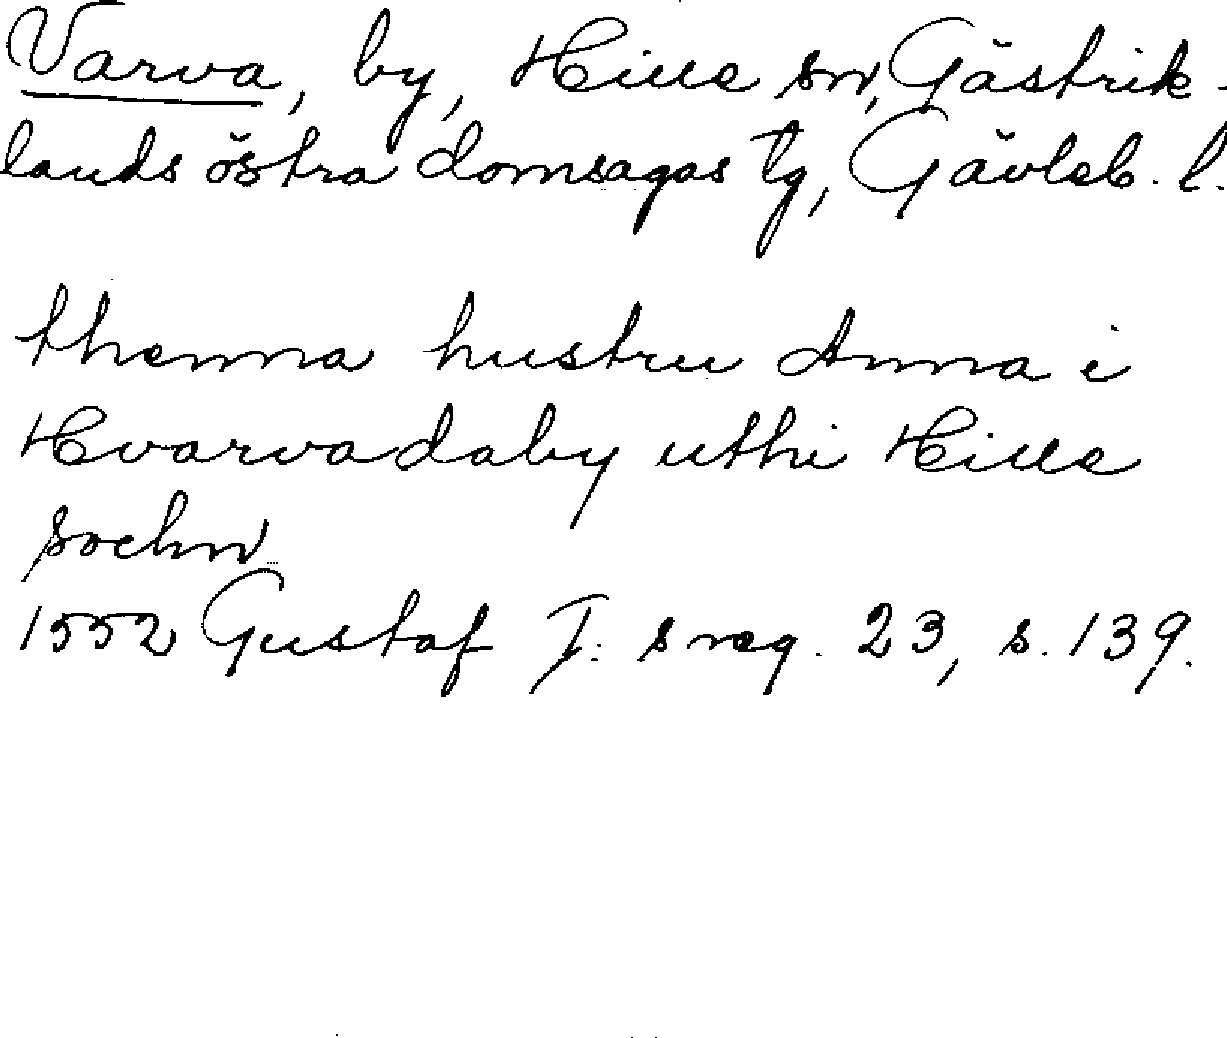 Varva, by, Hille sn, Gästrik-
lands östra domsagas tg, Gävleb. l.
thenna hustru Anna i
Hvarvadaby uthi Hille
sochn
1552 Gustaf I:s reg. 23, s. 139.